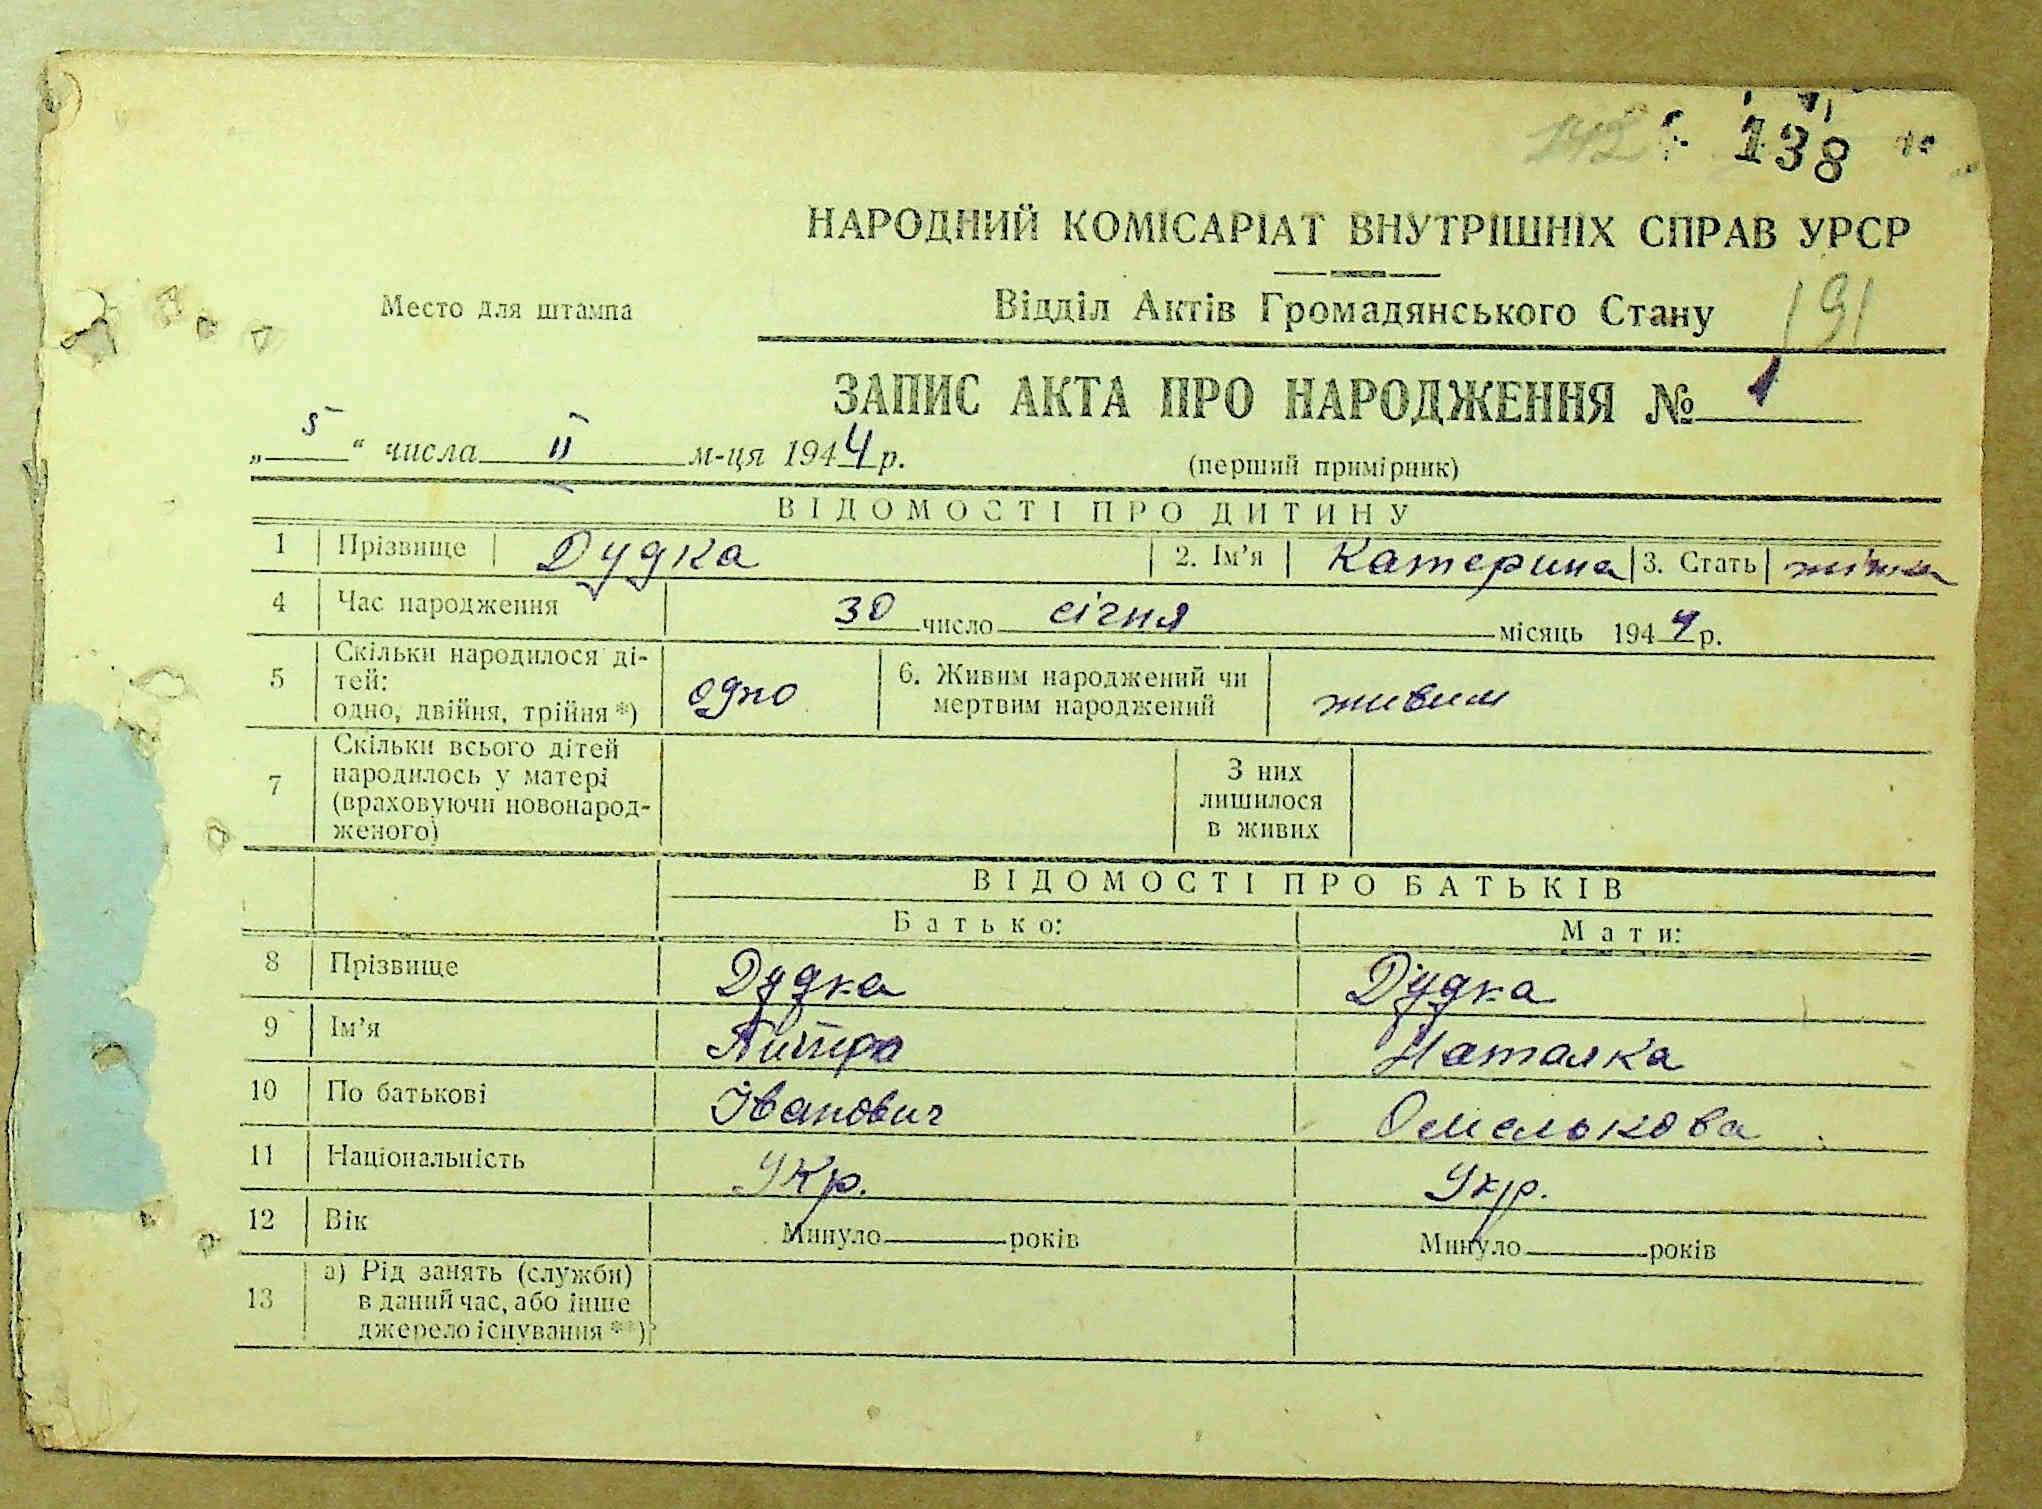 138
НАРОДНИЙ КОМІСАРІАТ ВНУТРІШНІХ СПРАВ УРСР
Место для штампа
Відділ Актів Громадянського Стану
191
ЗАПИС АКТА ПРО НАРОДЖЕННЯ № 1
„ 5 “ числа II м-ця 1944 р.
(перший примірник)
ВІДОМОСТІ ПРО ДИТИНУ
1 Прізвище Дудка 2. Ім’я Катерина 3. Стать
4 Час народження 30 число січня місяць 1944 р.
5 Скільки народилося ді-
тей:
одно, двійня, трійня *) одно
6. Живим народжений чи
мертвим народжений живим
7 Скільки всього дітей
народилось у матері
(враховуючи новонарод-
женого)
З них
лишилося
в живих
ВІДОМОСТІ ПРО БАТЬКІВ
Батько: Мати:
8 Прізвище Дудка Дудка
9 Ім’я Наталка
10 По батькові Іванович Омелькова
11 Національність Укр. Укр.
12 Вік Минуло років Минуло років
13 а) Рід занять (служби)
в даний час, або інше
джерело існування **)